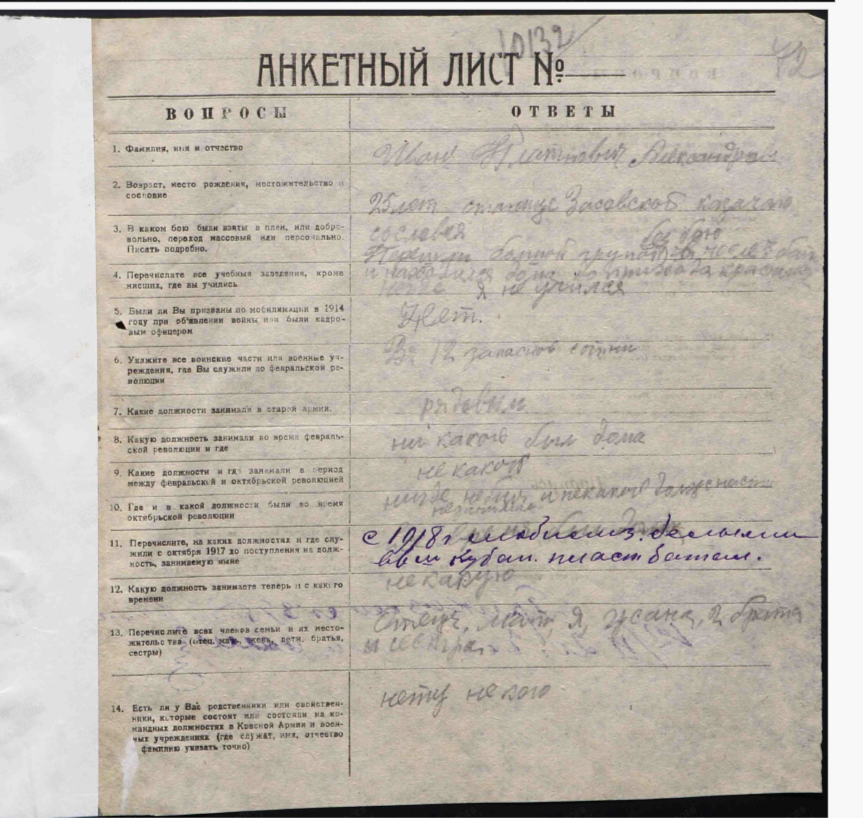 10132
72
АНКЕТНЫЙ ЛИСТ №
ВОПРОСЫ
ОТВЕТЫ
1. Фамилия, имя и отчество
Иван Платнович Александров
2. Возраст, место рождения, местожительство и
сословие
25 лет станице Засовской казачаго
сословья
3. В каком бою были взяты в плен, или добро-
вольно, переход массовый или персонально.
Писать подробно.
без бою
большой групой
дома
4. Перечислите все учебные заведения, кроме
низших, где вы учились
Я не учился
5. Были ли Вы призваны по мобилизации в 1914
году при об'явлении войны или были кадро-
вым офицером
Нет.
6. Укажите все воинские части или военные уч-
реждения, где Вы служили до февральской ре-
волюции
В 12 запасной сотни
7. Какие должности занимали в старой армии.
рядовым
8. Какую должность занимали во время февраль-
ской революции и где
ни какой был дома
9. Какие должности и где занимали в период
между февральской и октябрьской революцией
не какой
10. Где и в какой должности были во время
октябрьской революции
нигде не был и некакой должности
11. Перечислите, на каких должностях и где слу-
жили с октября 1917 до поступления на долж-
ность, занимаемую ныне
с 1918 г мобилиз. белыми
Кубан. пласт батал.
12. Какую должность занимаете теперь и с какого
времени
некакую
13. Перечислите всех членов семьи и их место-
жительства (отец, мать, жена, дети, братья,
сестры)
Отец, мать, я, жана, 2 брата
и сестра.
14. Есть ли у Вас родственники или свойствен-
ники, которые состоят или состояли на ко-
мандных должностях в Красной Армии и воен-
ных учреждениях (где служат, имя, отчество
фамилию указать точно)
нету некого